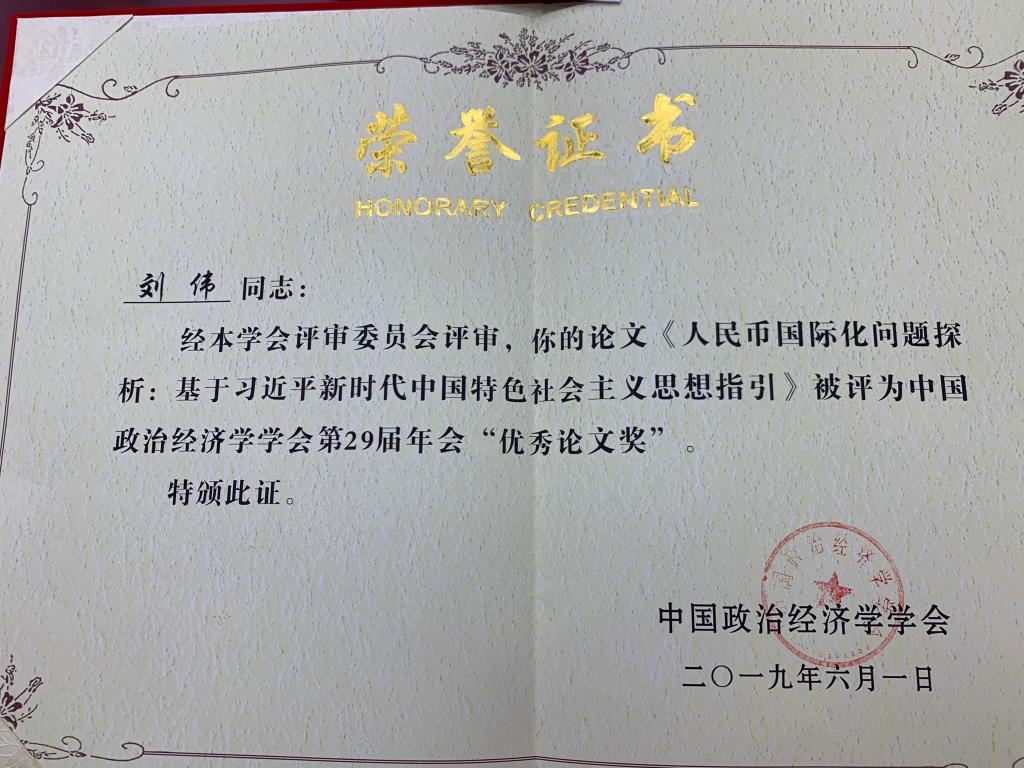 荣誉证书
HONORARY CREDENTIAL
刘伟 同志：
经本学会评审委员会评审，你的论文《人民币国际化问题探
析：基于习近平新时代中国特色社会主义思想指引》被评为中国
政治经济学学会第29届年会“优秀论文奖”。
特颁此证。
中国政治经济学学会
二〇一九年六月一日